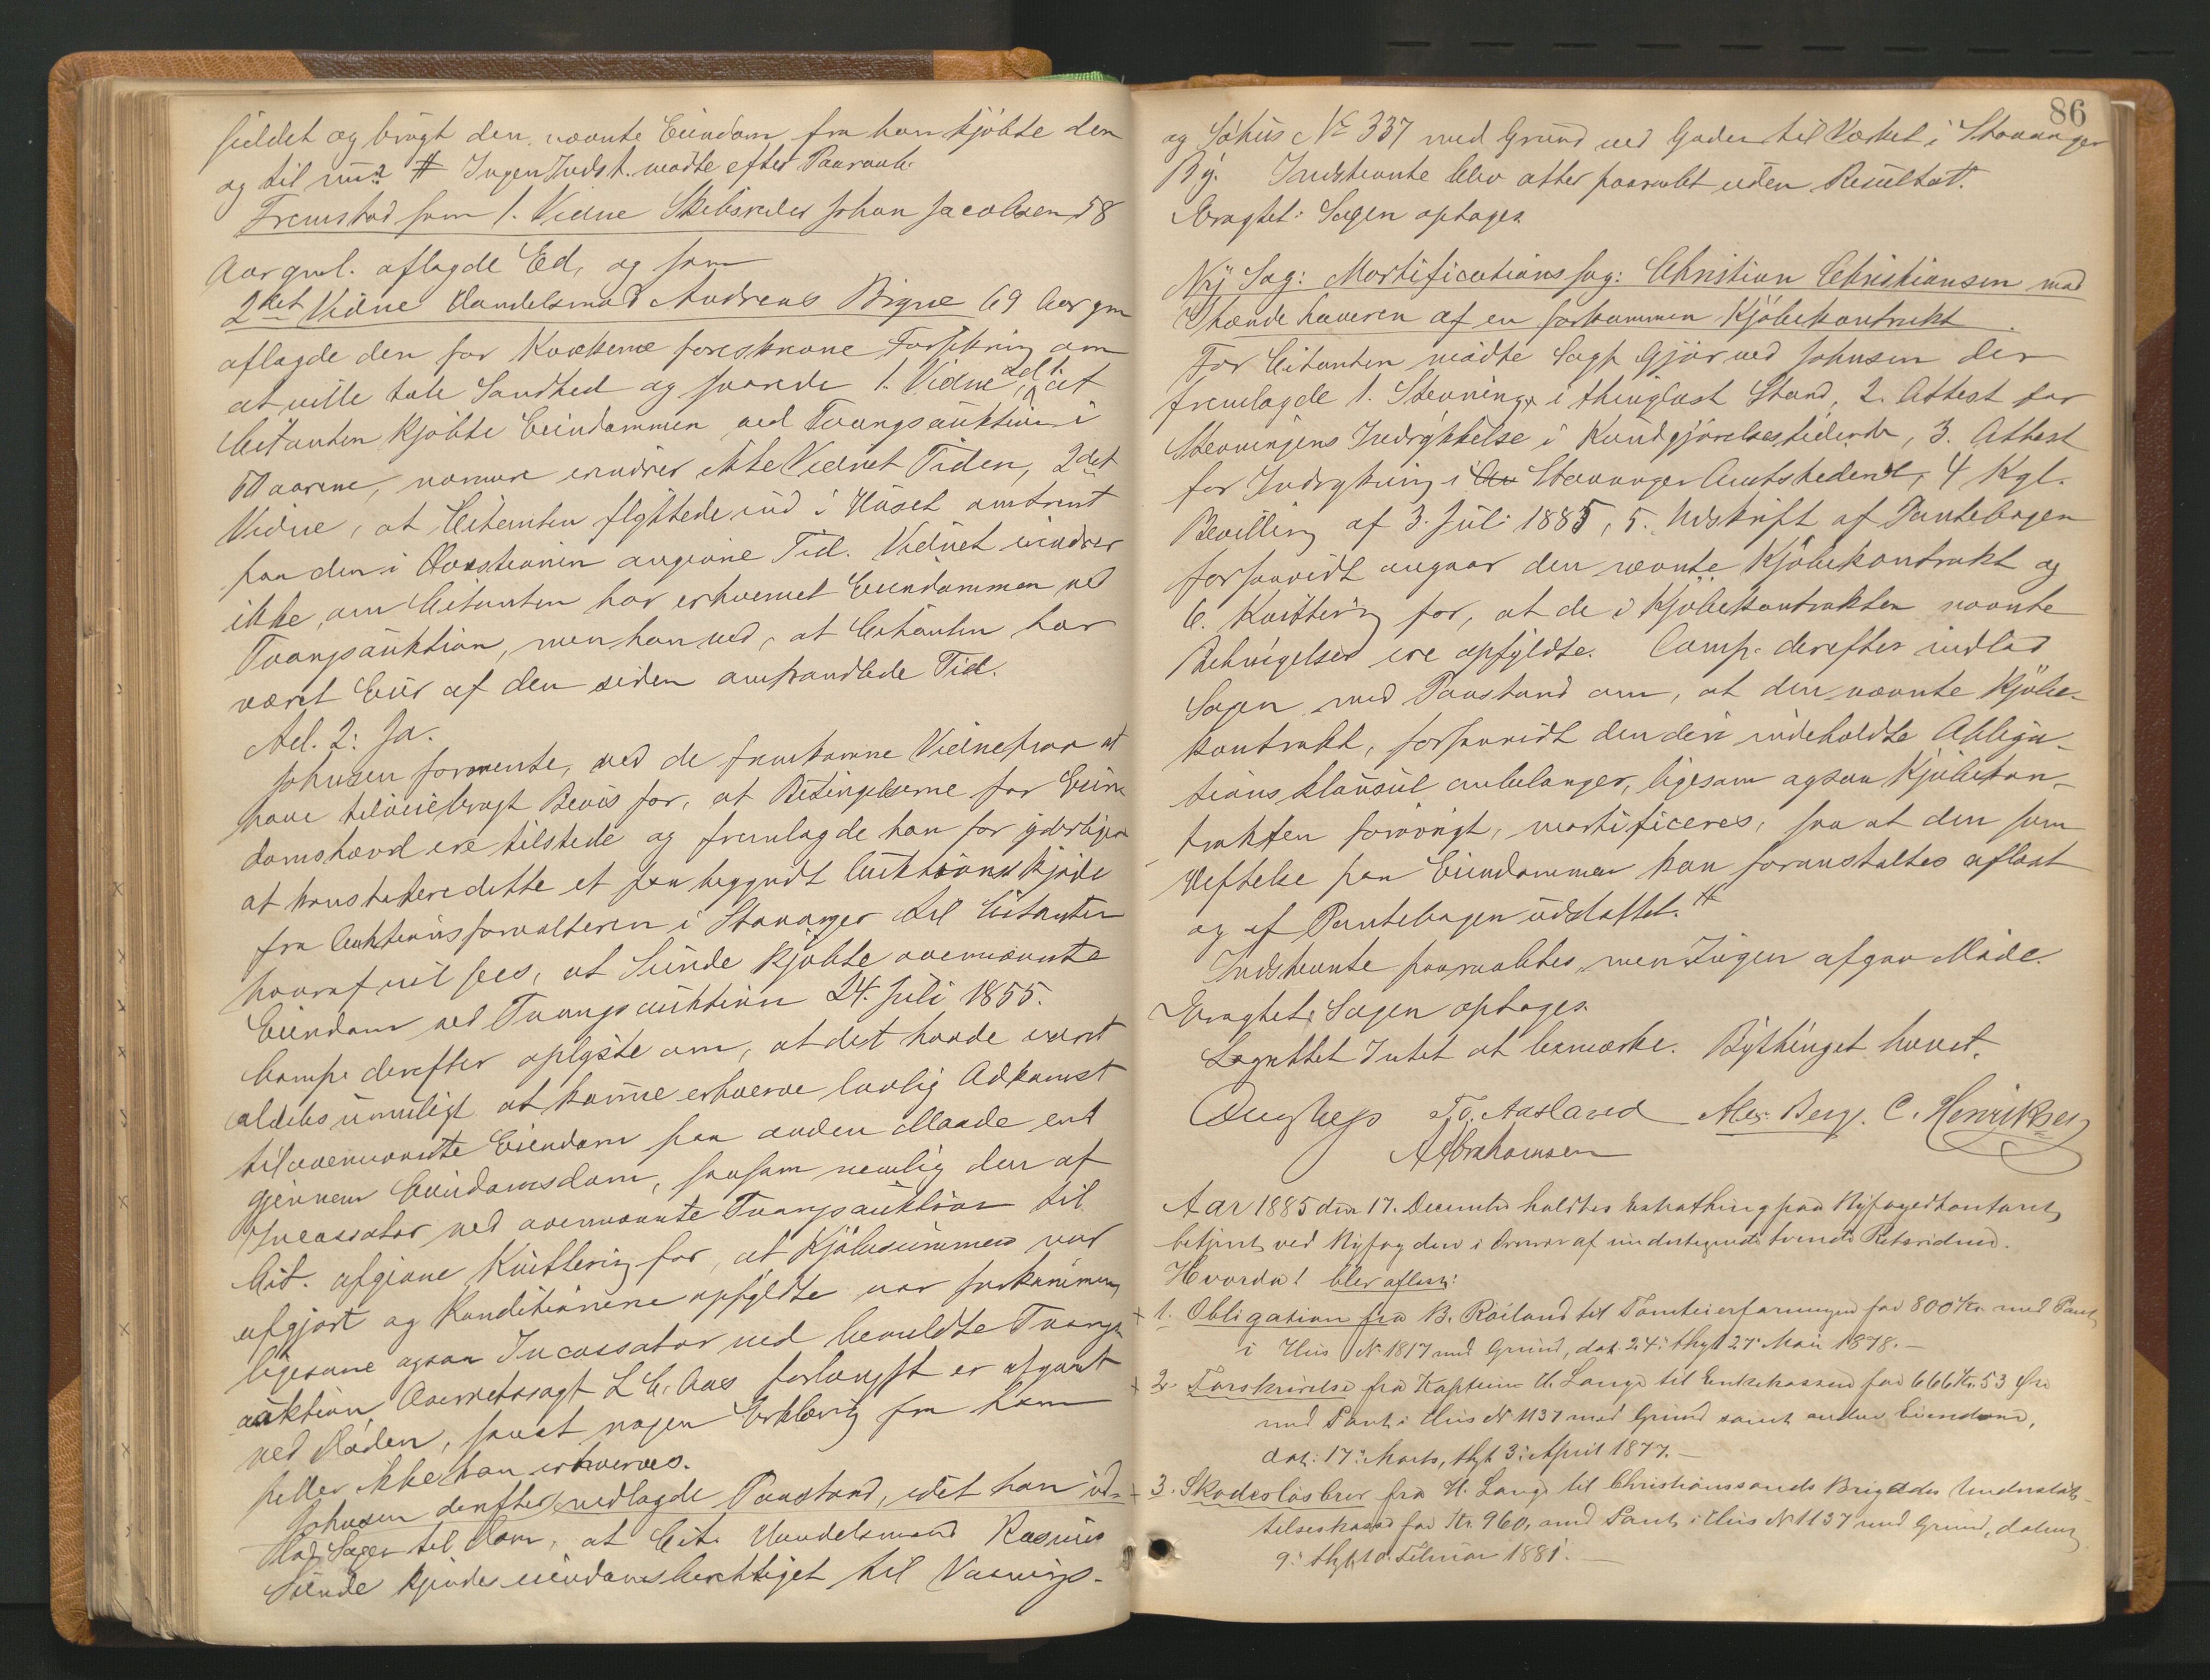 hældet og brugt den nævnte Eiendom fra han kjöbte den
og til nu. # Ingen Indst. mødte efter Paaraab.
Fremstod som 1. Vidne Skibsreder Johan Jacobsen 58
Aar gml. aflagde Ed, og som
2det Vidne Handelsmand Andreas Bigne 69 Aar gm
aflagde den for Kvækerne foreskrevne Forsikring om
at ville tale Sandhed og svarede 1. Vidne, ad 1. at
Citanten kjöbte Eiendommen ved Tvangsauktion i
50 aarene, naar erindrer ikke Vidnet Tiden, 2det
Vidne, at Citanten flyttede ind i Huset omtrent
paa den i Qvæstionen angivne Tid. Vidnet erindrer
ikke, om Citanten har erhvervet Eiendommen ved
Tvangsauktion, men han ved, at Citanten har
været Eier af den siden omhandlede Tid.
Ad. 2: Ja.
Johnsen formente, ved de fremkomne Vidneprov at
have tilveiebragt Bevis for, at Betingelserne for Eien
domshævd ere tilstede og fremlagde han for yderligere
at konstatere dette et paa begyndt Auktionsskjöde
fra Auktionsforvalteren i Stavanger til Citanten
hvoraf vil sees, at Sunde kjöbte ovennævnte
Eiendom ved Tvangsauktion 24. Juli 1855.
Comp. derefter oplyste om, at det havde været
aldeles umuligt at kunne erhverve lovlig Adkomst
til ovennævnte Eiendom paa anden Maade end
gjennem Eiendomsdom, saasom nemlig den af
Incassator ved ovennævnte Tvangsauktion til
Cit. afgivne Kvittering for, at Kjöbesummen var
afgjort og Konditionerne opfyldte var forkommen,
ligesom ogsaa Incassator ved bemeldte Tvangs
auktion, Overretssagf. L. C. Aas forlængst er afgaaet
ved Döden, saa at nogen Erklæring fra ham
heller ikke kan erhverves.
Johnsen derefter nedlagde Paastand, idet han ind-
lod Sagen til Dom, at Cit. Handelsmand Rasmus
Sunde kjendes eiendomsberettiget til Vaanings-
86
og Söhus № 337 med Grund ved Gaden til Værket i Stavanger
By. Indstevnte blev atter paaraabt uden Resultat.
Eragtet: Sagen optages
Ny Sag: Mortificationssag: Christian Christiansen mod
Ihændehaveren af en forkommen Kjöbekontrakt.
For Citanten mödte Sagf. Gjör ved Johnsen der
fremlagde 1. Stevning i thinglæst Stand, 2. Attest for
Stevningens Indrykkelse i Kundgjörelsestidende, 3. Attest
for Indrykning i Stavanger Amtstidende, 4 Kgl.
Bevilling af 3. Juli 1885, 5. Udskrift af Pantebogen
forsaavidt angaar den nævnte Kjöbekontrakt og
6. Kvittering for, at de i Kjöbekontrakten nævnte
Betingelser ere opfyldte. Comp. derefter indlod
Sagen med Paastand om, at den nævnte Kjöbe-
kontrakt, forsaavidt den deri indeholdte Obliga-
tionsklausul anbelanger, ligesom ogsaa Kjöbekon-
trakten forövrigt, mortificeres, saa at den som
Heftelse paa Eiendommen kan foranstaltes aflæst
og af Pantebogen udslettet. #
Indstevnte paaraabtes, men Ingen afgav Möde.
Eragtet: Sagen optages
Lagrettet Intet at bemærke. Bythinget hævet.
To. Aasland Alex. Berg. C. Henriksen
A Abrahamsen
Aar 1885 den 17. December holdtes Extrathing paa Byfogedkontoret,
betjent ved Byfogden i Overvær af undertegnede tvende Retsvidner.
Hvorda! blev aflæst:
1. Obligation fra B. Roiland til Tomteierforeningen for 800 Kr. med Pant
i Hus № 1817 med Grund, dat. 24. thgl. 27. Mai 1878.-
2. Forskrivelse fra Kaptein H. Lange til Enkekassen for 666 Kr. 53 Öre
med Pant i Hus № 1137 med Grund samt anden Eiendom,
dat: 17. Marts, thgl 3. April 1877.-
3. Skadeslösbrev fra H. Lange til Christianssands Brigades Understöt-
telseskasse for Kr. 960, med Pant i Hus № 1137 med Grund, dateret
9. thgl. 10. Februar 1881.-